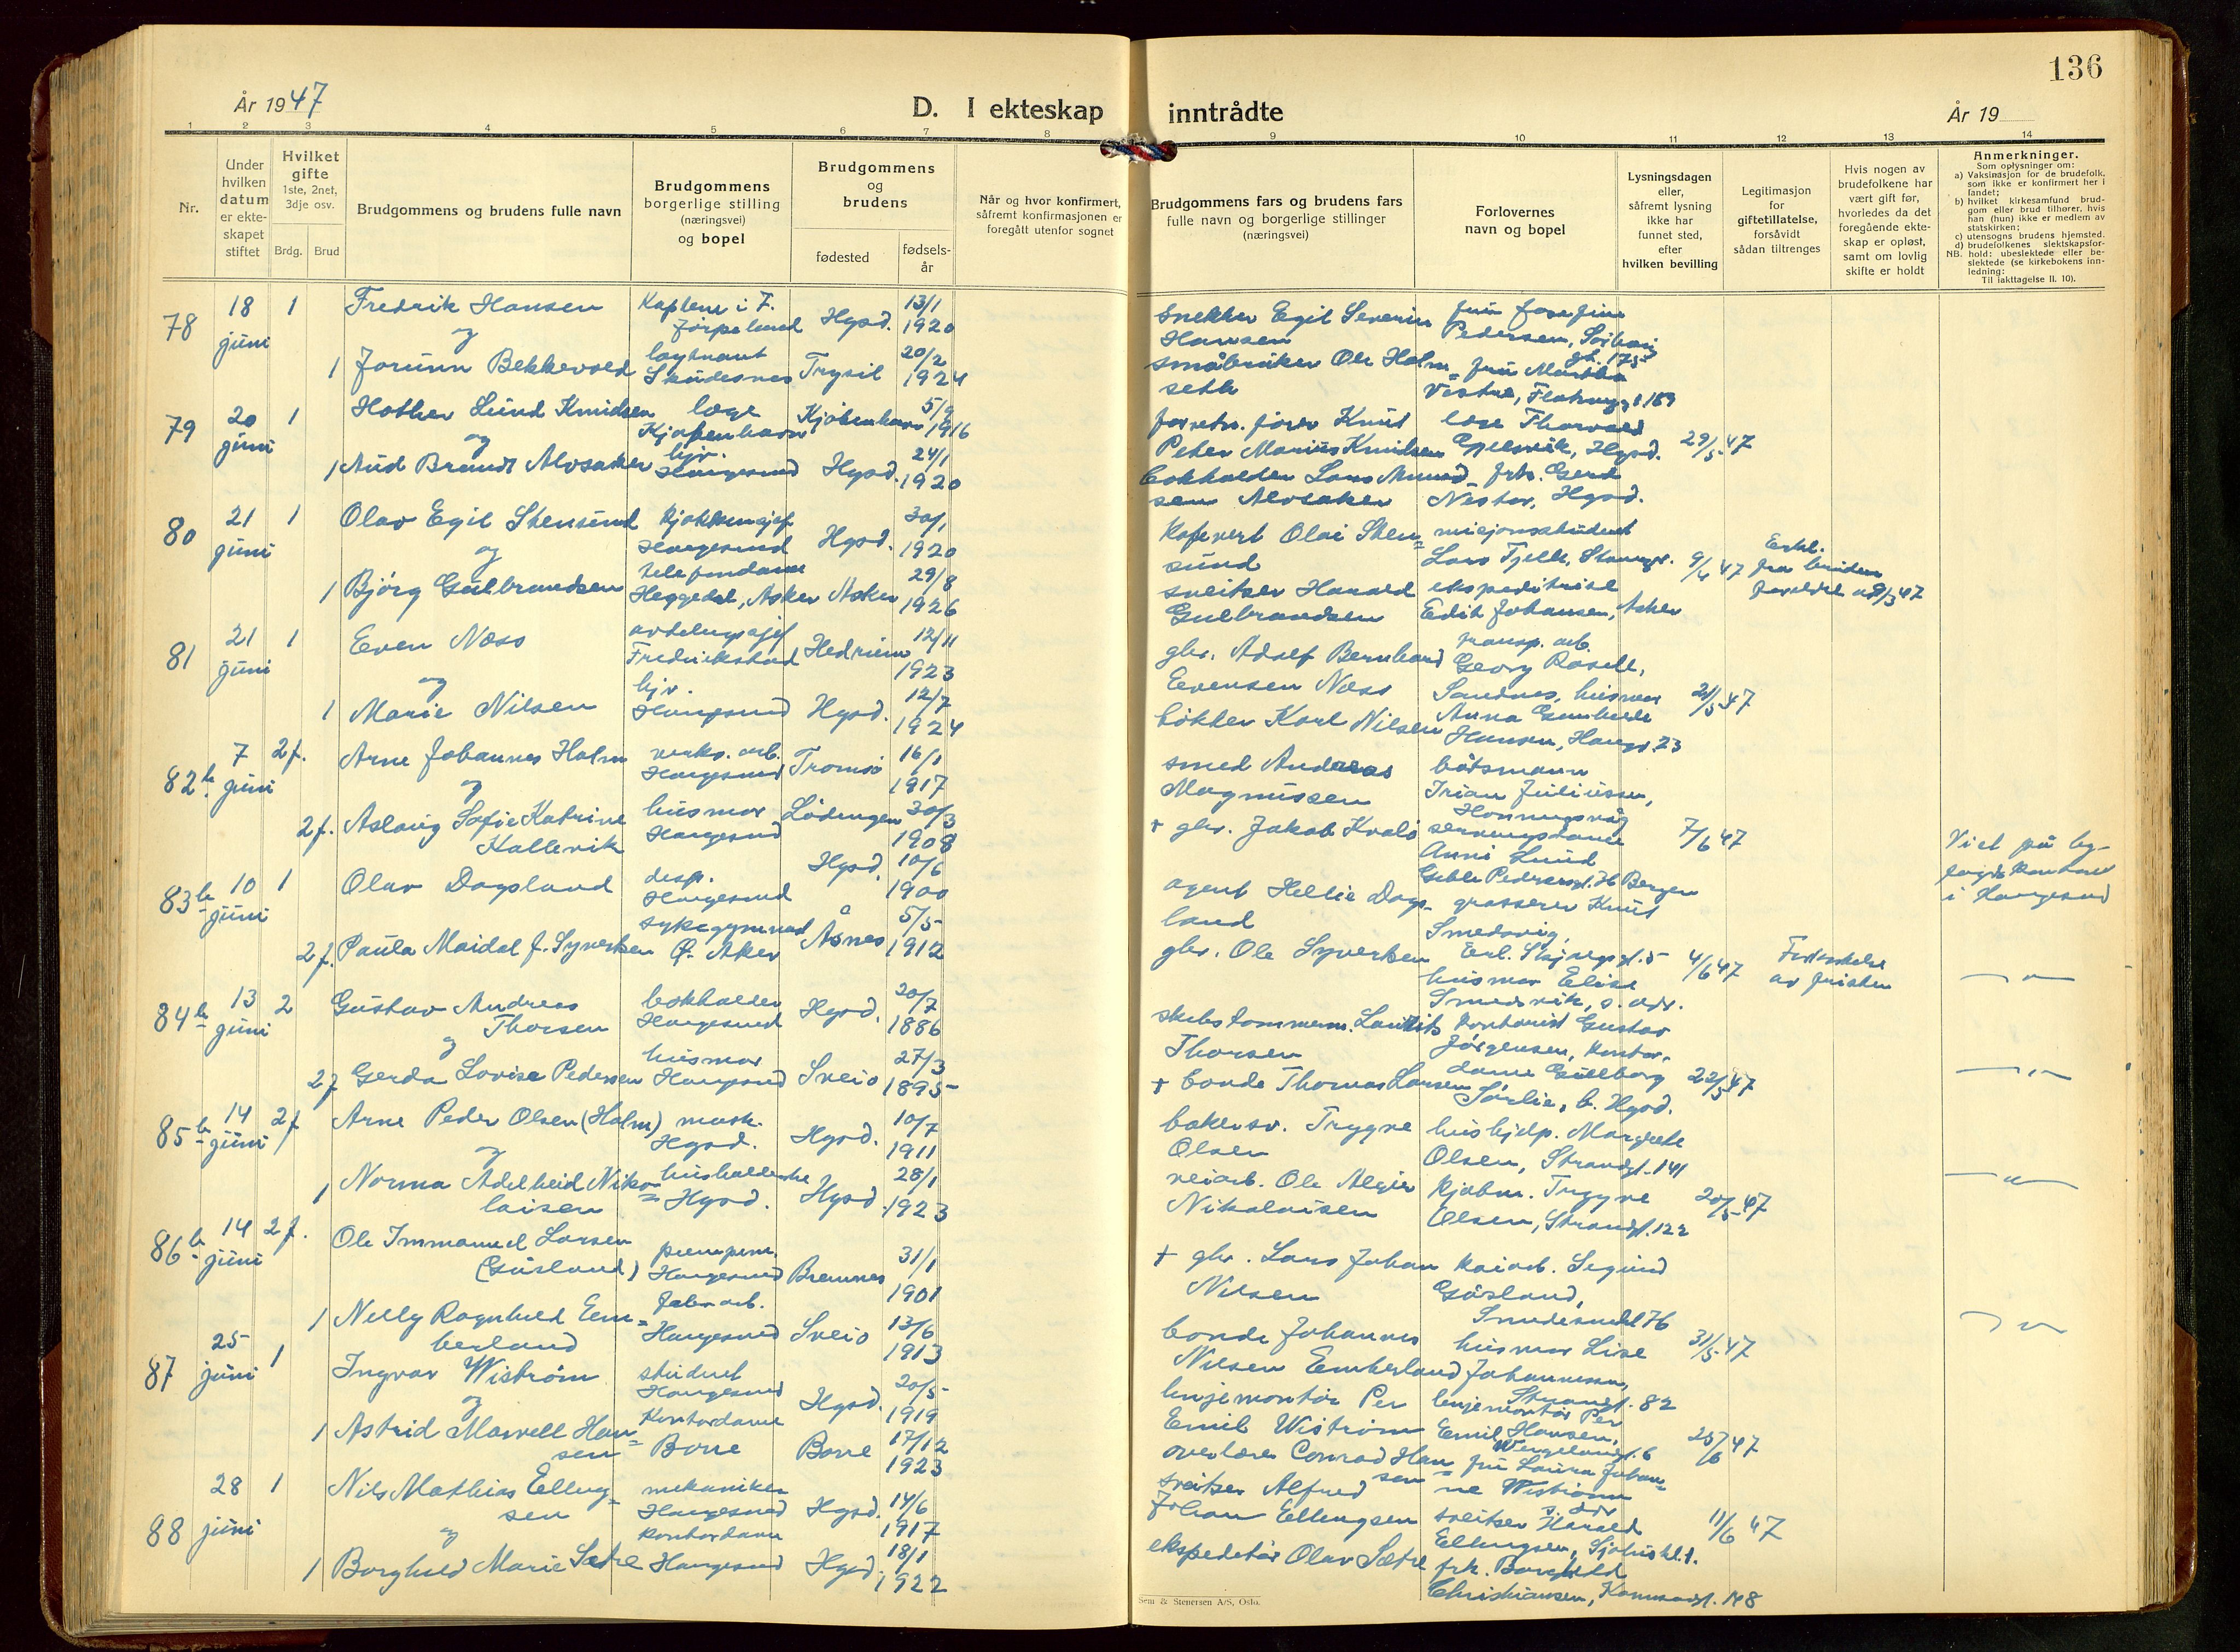 136
År 1947
D. I ekteskap inntrådte
År 19
1 2 3 4 5 6 7 8 9 10 11 12 13 14
Nr.
Under
hvilken
datum
er ekte-
skapet
stiftet
Hvilket
gifte
1ste, 2net,
3dje osv.
Brdg. Brud
Brudgommens og brudens fulle navn
Brudgommens
borgerlige stilling
(næringsvei)
og bopel
Brudgommens
og
brudens
fødested
fødsels-
år
Når og hvor konfirmert,
såfremt konfirmasjonen er
foregått utenfor sognet
Brudgommens fars og brudens fars
fulle navn og borgerlige stillinger
(næringsvei)
Forlovernes
navn og bopel
Lysningsdagen
eller,
såfremt lysning
ikke har
funnet sted,
efter
hvilken bevilling
Legitimasjon
for
giftetillatelse,
forsåvidt
sådan tiltrenges
Hvis nogen av
brudefolkene har
vært gift før,
hvorledes da det
foregående ekte-
skap er opløst,
samt om lovlig
skifte er holdt
Anmerkninger.
Som oplysninger om:
a) Vaksinasjon for de brudefolk,
som ikke er konfirmert her i
landet;
b) hvilket kirkesamfund brud-
gom eller brud tilhører, hvis
han (hun) ikke er medlem av
statskirken;
c) utensogns brudens hjemsted.
d) brudefolkenes slektskapsfor-
NB. hold: ubeslektede eller be-
slektede (se kirkebokens inn-
ledning:
Til iakttagelse II. 10).
78
18 juni
1
Fredrik Hansen
og
1 Jorunn Bekkevold
Jørpeland
løytnant
Skudesnes
Hgsd.
13/1
1920
Trysil
20/2
1924
snekker Egil Severin
Hansen
småbruker Ole Holm
seth
fru Josefine
Pedersen,
gt. 175
fru Martha
79
20 juni
1
Hother Lund Knudsen
og
1 Aud Brandt Alvsaker
læge
Kjøbenhavn
hjv.
Haugesund
Kjøbenhavn
5/9
1916
Hgsd.
24/1
1920
forretn. fører Knut
Peter Marius Knudsen
bokholder Lars Amund
sen Alvsaker
Thorvald
Gjelsvik, Hgsd.
frk. Gerd
Hgsd.
29/5-47
80
21 juni
1
Olav Egil Stensund
og
1 Bjørg Gulbrandsen
kjøkkensjef
Haugesund
telefondame
Heggedal, Asker
Hgsd.
30/1
1920
Asker
29/8
1926
kafevert Olai Sten=
sund
sveitser Harald
Gulbrandsen
misjonsstudent
Lars Tjelle,
ekspeditrise
Edit Johansen, Asker
9/6 47
Erkl.
fra brudens
foreldre
81
21 juni
1
Even Næss
og
1 Marie Nilsen
avdelingssjef
Fredrikstad
hjv.
Haugesund
Hedrum
12/11
1923
Hgsd.
12/7
1924
gbr. Adolf Bernhard
Evensen Næss
bøkker Karl Nilsen
transp. arb.
Georg Rosell,
Sandnes, husmor
Anna
Hansen, 23
21/5 47
82b
7 juni
2f.
Arne Johannes Holm
og
2f. Aslaug Sofie Katrine
Kallevik
verks. arb.
Haugesund
husmor
Haugesund
Tromsø
16/1
1917
Lødingen
30/3
1908
smed Andreas
Magnussen
+ gbr. Jakob Kvalø
båtsmann
Juliussen,
Honningsvåg
serveringsdame
Anni Lund
Bergen
7/6 47
Viet på by-
i Haugesund
83b
10 juni
1
Olav Dagsland
2f. Paula Maidal f. Syvertsen
disp.
Haugesund
sykegymnast
Ø. Aker
Hgsd.
10/6
1900
Åsnes
5/5
1912
agent Hellie Dags-
land
gbr. Ole Syvertsen
grosserer Knut
Smedsvig,
Erl. Skjalgs gt. 5
husmor Elise
Smedsvik, s. adr.
4/6 47
av fristen
— " —
84b
13 juni
2
Gustav Andreas
Thorsen
og
2f Gerda Lovise Pedersen
bokholder
Haugesund
husmor
Haugesund
Hgsd.
20/7
1886
Sveio
27/3
1895
skibstømmerm. Lauritz
Thorsen
+ bonde Thomas Larsen
kontorist Gustav
Jørgensen, kontor-
dame Gullborg
Sørlie, b. Hgsd.
22/5 47
— " —
85b
14 juni
2f
Arne Peder Olsen (Holm)
og
1 Norma Adelheid Niko=
laisen
mask.
Hgsd.
husholderske
Hgsd.
Hgsd.
10/7
1911
Hgsd.
28/1
1923
bakersv. Trygve
Olsen
veiarb. Ole Algier
Nikolaisen
hushjelp. Margrethe
Olsen, Strandgt. 141
kjøbm. Trygve
Olsen, Strandgt. 122
20/5-47
— " —
86b
14 juni
2f.
Ole Immanuel Larsen
(Gåsland)
1 Nelly Ragnhild Em=
berland
Haugesund
fabr. arb.
Haugesund
Bremnes
31/1
1901
Sveio
13/6
1913
+ gbr. Lars Johan
Nilsen
bonde Johannes
Nilsen Emberland
kaiarb. Sigurd
Gåsland,
76
husmor Lise
Johannessen,
Strandgt. 82
31/5-47
— " —
87
25 juni
1
Ingvar Wistrøm
og
1 Astrid Marvell Han=
sen
student
Haugesund
kontordame
Borre
Hgsd.
20/5
1919
Borre
17/12
1923
linjemontør Per
Emil Wistrøm
overlærer Conrad Han=
sen
linjemontør Per
Emil Hansen,
Wergelandsgt. 6
fru Laura Johan=
ne Wistrøm
s. adr
20/6 47
88
28 juni
1
Nils Mathias Elling=
sen
og
1 Borghild Marie Sætre
mekaniker
Haugesund
kontordame
Haugesund
Hgsd.
14/6
1917
Hgsd.
18/1
1922
sveitser Alfred
Johan Ellingsen
ekspeditør Olav Sætre
sveitser Harald
Ellingsen,
frk. Borghild
Christiansen,
11/6 47
Sem & Stenersen A/S, Oslo.